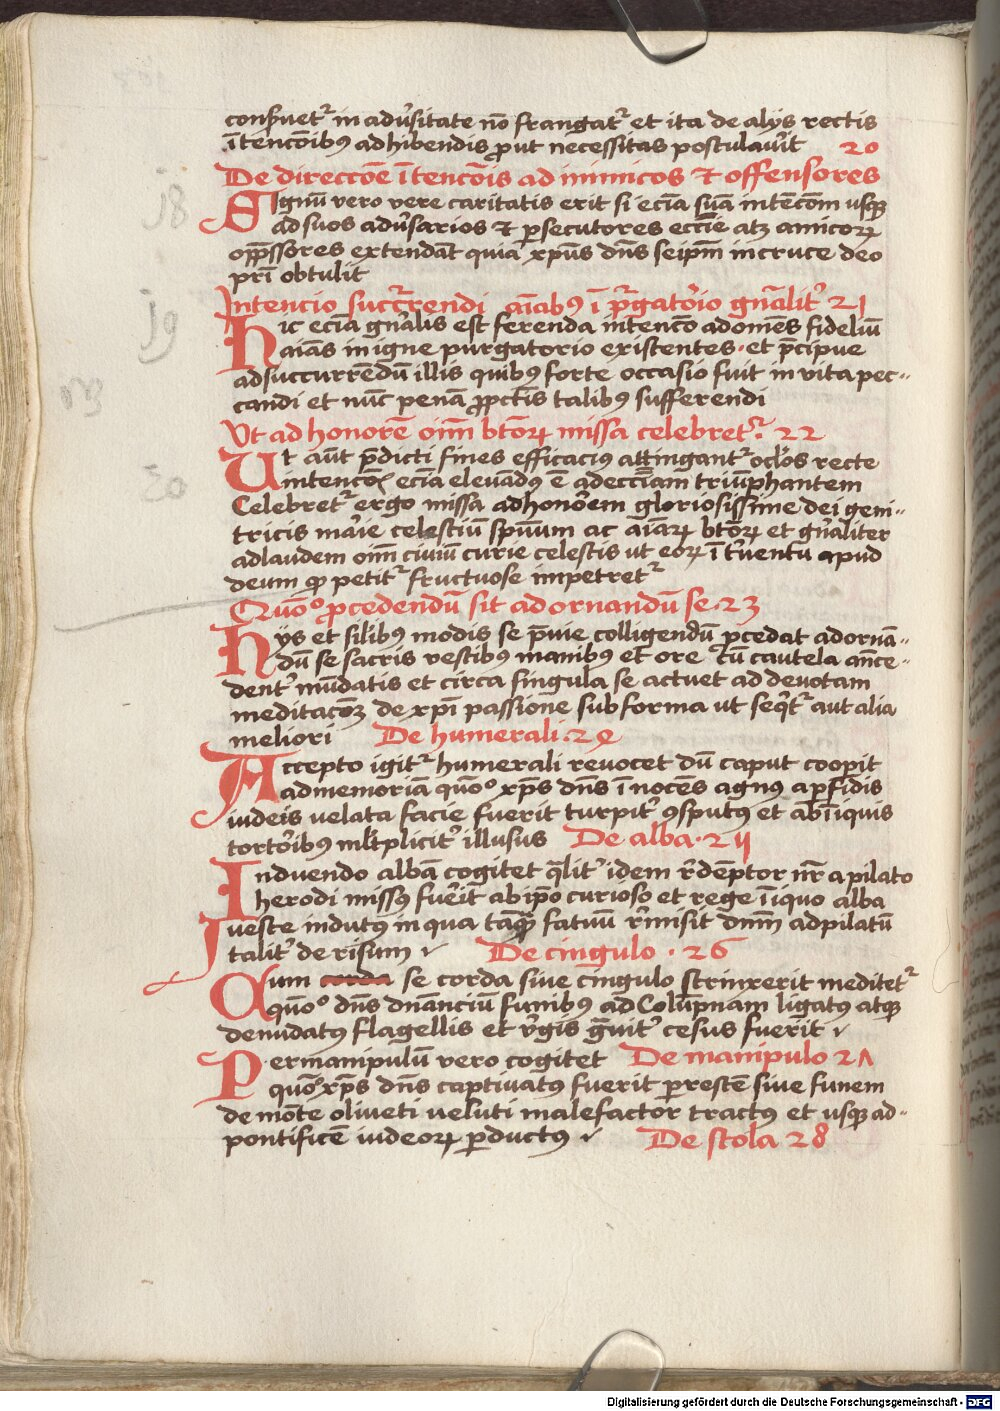 conẜuet᷑ in adu᷑sitate nō frangat᷑ et ita de alijs rectis
ītencōibus adhibendis ꝓut necessitas postulau᷑it 20
De direccōe ītencōis ad inimicos et offensores
Signū vero vere caritatis erit si ecīa suā intēcōm usqꝫ
ad suos adu᷑sarios et ꝑsecutores eccīe atqꝫ amicoꝝ
opp̄ssores extendāt quia xp̄us dn̄s seip̄m in cruce deo
pr̄i obtulit
Intencio succ᷑rrendi aīabus ī p᷑gator̄io gn̄alit᷑ 21
Hic ecīa gn̄alis est ferenda intencō ad om̄es fideliū
aīas in igne purgatorio existentes et p̄cipue
ad succurrēdū illis quibus forte occasio fuit in vita pec-
candi et nūc penā ꝓpt̄is talibus sufferendi
Vt ad honorē oīm btōꝝ missa celebret᷑ 22
Ut aūt p̄dicti fines efficacius attingant᷑ oclōs recte
intencōis ecīa eleuādus ē ad eccīam triūphantem
Celebret᷑ ergo missa ad honōrem gloriosissime dei geni-
tricis mar̄ie celestiū sp̄uum ac aīaꝝ btōꝝ et gn̄aliter
ad laudem oīm ciuiū curie celestis ut eoꝝ īt᷑uentu apud
deum qꝫ petit᷑ fructuose impetret᷑
Quōo ꝓcedendū sit ad ornandū se 23
Hijs et silibus modis se p̄uie colligendū ꝓcedat ad ornā-
dū se sacris vestibus manibus et ore cū cautela an̄ce-
dent᷑ mūdatis et circa singula se actuet ad deuotam
meditacōeꝫ de xp̄i passione sub forma ut seqt᷑ aut alia
meliori De humerali 24
Accepto igit᷑ humerali reuocet dū caput coop̱it
ad memoriā quōo xp̄s dn̄s īnocēs agnus a ꝑfidis
iudeis velata facie fuerit turpit᷑ ꝯsputus et ab īiquis
tort̄oribus ml̄tiplicit᷑ illusus De alba 25
Induendo albā cogitet ql̄it᷑ idem r᷑dēptor nr̄ a pilato
herodi missus fu᷑eit ab ip̄o curioso et rege īiquo alba
veste indutus in qua tāqꝫ fatuū r᷑misit dn̄m ad pilatū
talit᷑ derisum De cingulo 26
Cum corda se corda siue cingulo strinxerit meditet᷑
quōo dn̄s dn̄anciū funibus ad Colūpnam ligatus atqꝫ
denudatus flagellis et v᷑gis g̃uit᷑ cesus fuerit
Per manipulū vero cogitet De manipulo 27
quōo xp̄s dn̄s captiuatus fuerit ꝑ restē siue funem
de mōte oliueti veluti malefactor tractus et usqꝫ ad-
pontificē iudeoꝝ ꝑductus De stola 28
j8
j9
Digitalisierung gefördert durch die Deutsche Forschungsgemeinschaft - DFG